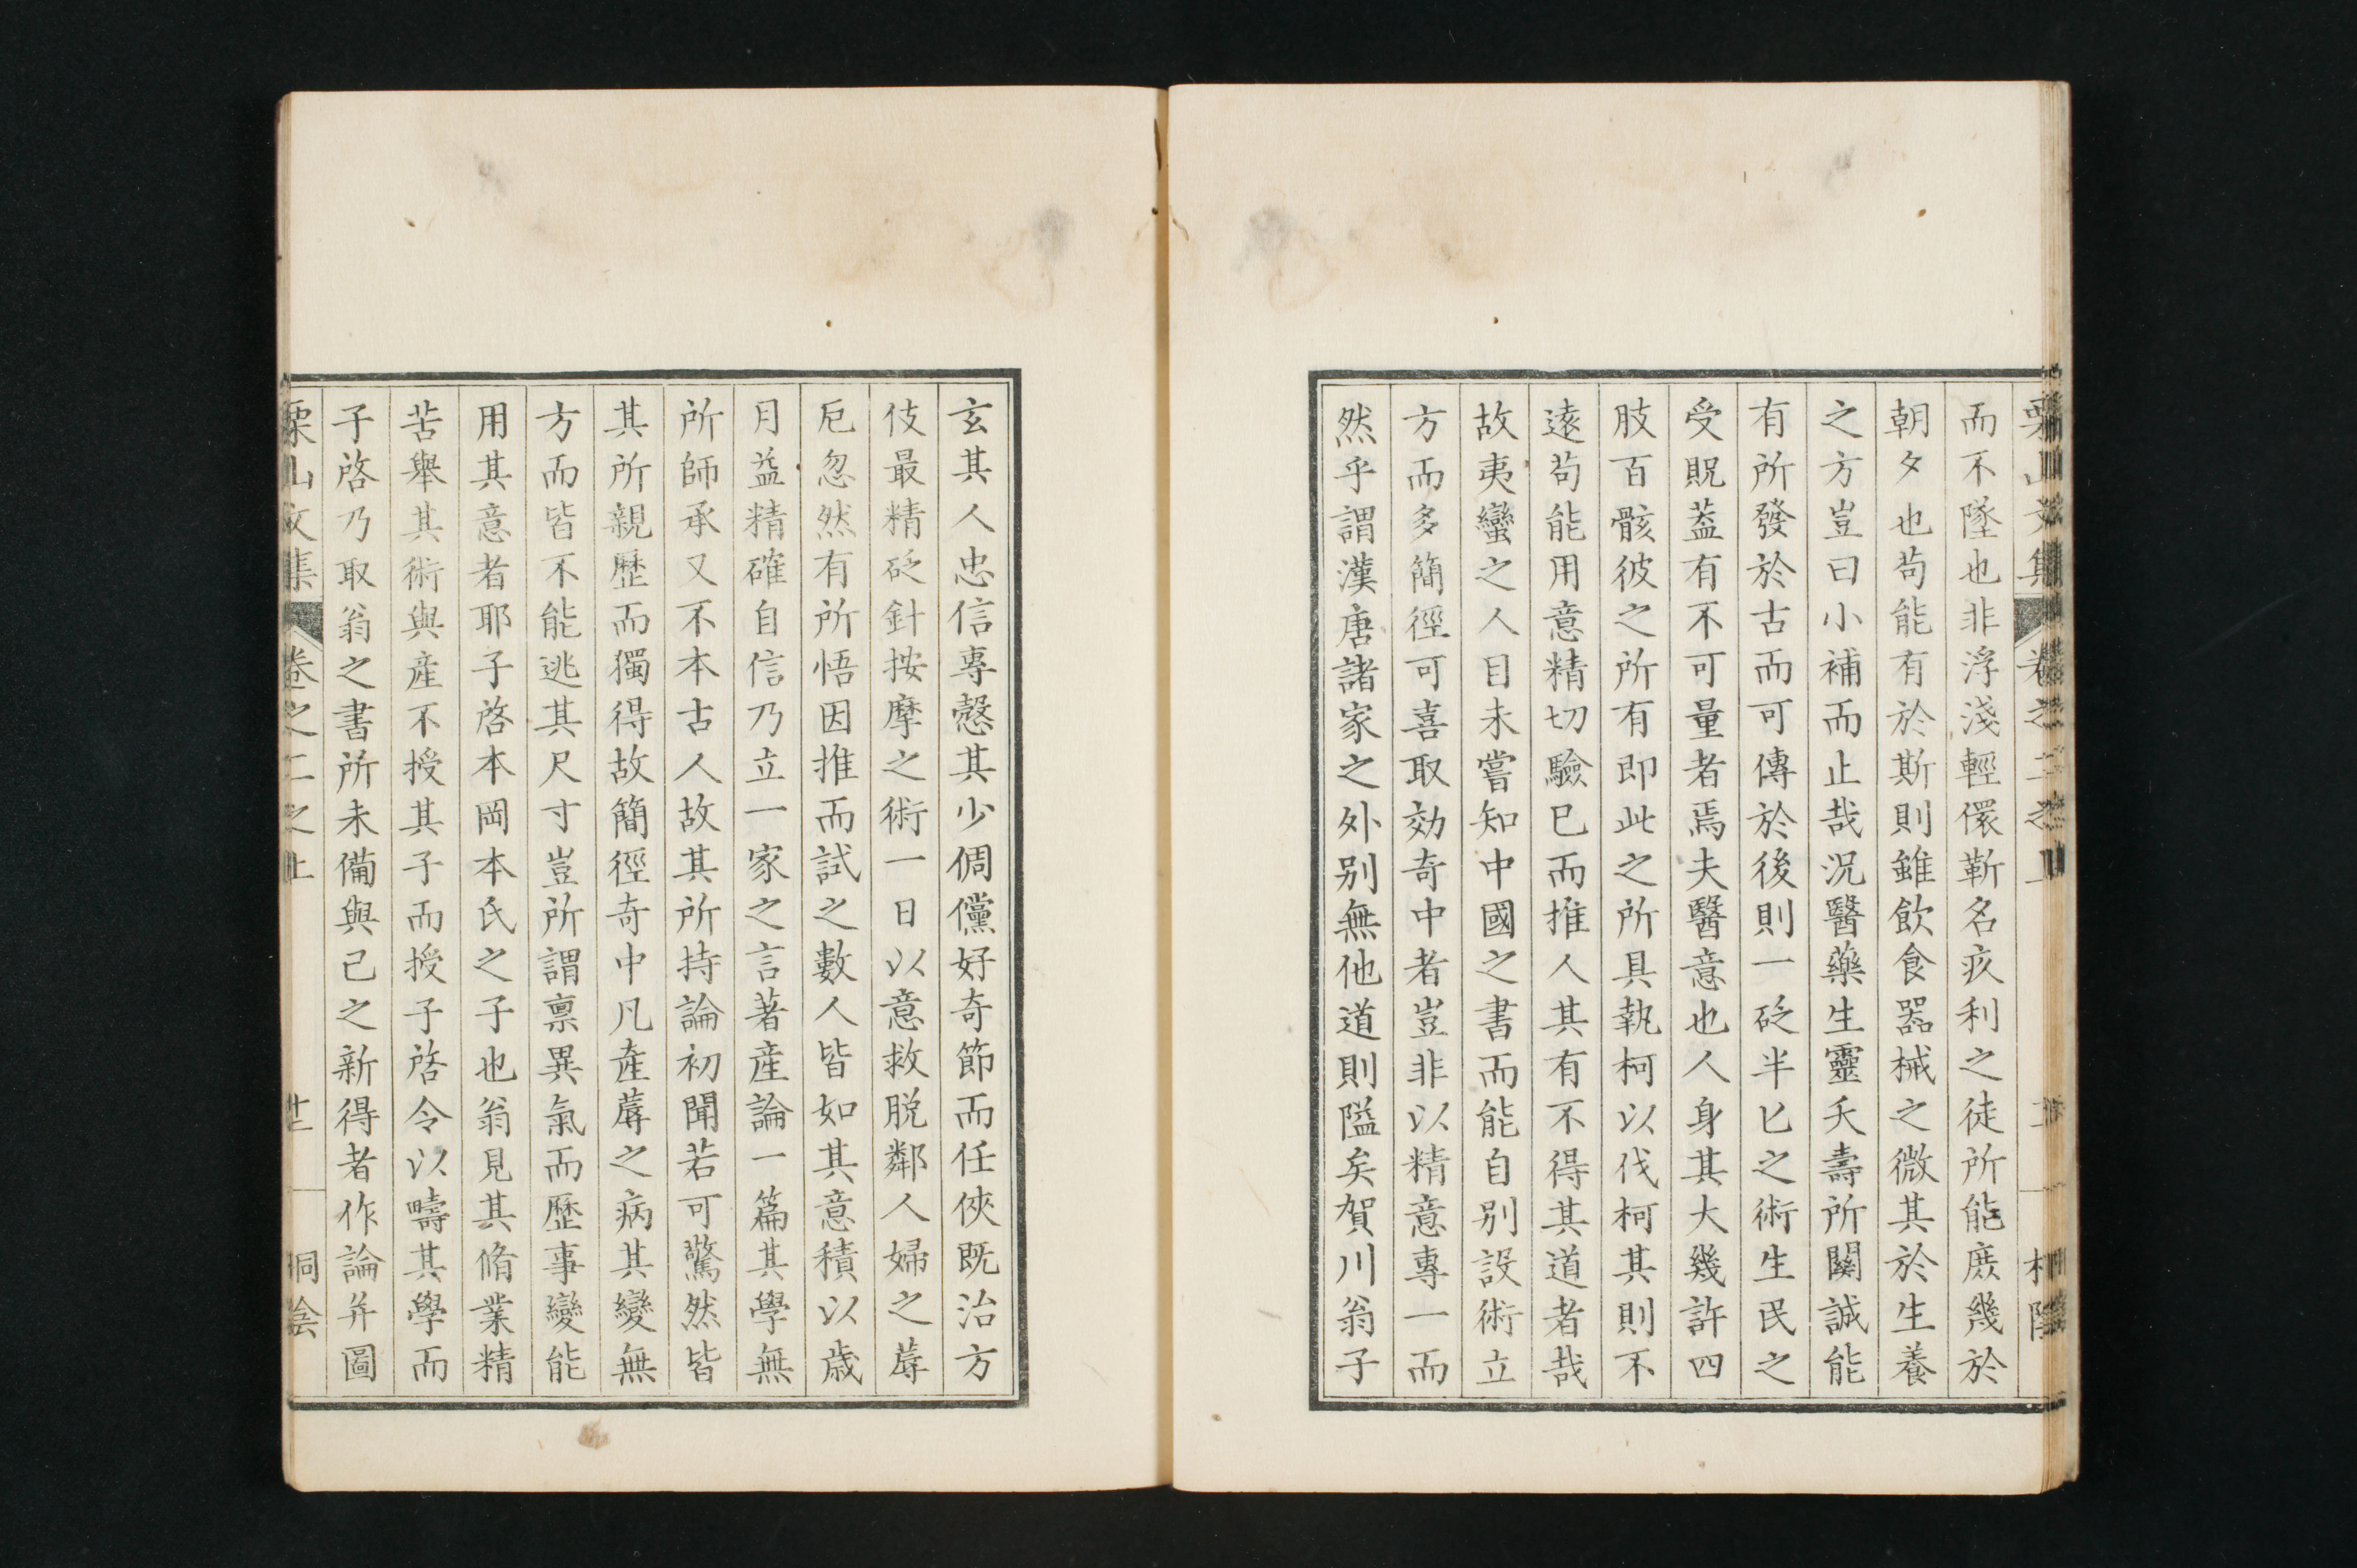 而不墜也非浮淺輕儇靳名疚利之徒所能庶幾於
朝夕也苟能有於斯則雖飲食器械之微其於生養
之方豈曰小補而止哉況醫藥生靈夭壽所關誠能
有所發於古而可傳於後則一砭半匕之術生民之
受貺葢有不可量者焉夫醫意也人身其大幾許四
肢百骸彼之所有即此之所具執柯以伐柯其則不
遠苟能用意精切驗已而推人其有不得其道者哉
故夷蠻之人目未嘗知中國之書而能自別設術立
方而多簡徑可喜取効奇中者豈非以精意專一而
然乎謂漢唐諸家之外別無他道則隘矣賀川翁子
玄其人忠信專愨其少倜儻好奇節而任俠既治方
伎最精砭針按摩之術一日以意救脫鄰人婦之蓐
戹忽然有所悟因推而試之數人皆如其意積以歲
月益精確自信乃立一家之言著産論一篇其學無
所師承又不本古人故其所持論初聞若可驚然皆
其所親歷而獨得故簡徑奇中凡産蓐之病其變無
方而皆不能逃其尺寸豈所謂禀異氣而歷事變能
用其意者耶子啓本岡本氏之子也翁見其脩業精
苦舉其術與産不授其子而授子啓令以疇其學而
子啓乃取翁之書所未備與己之新得者作論并圖
栗山文集 卷之二之上 廿二 桐陰